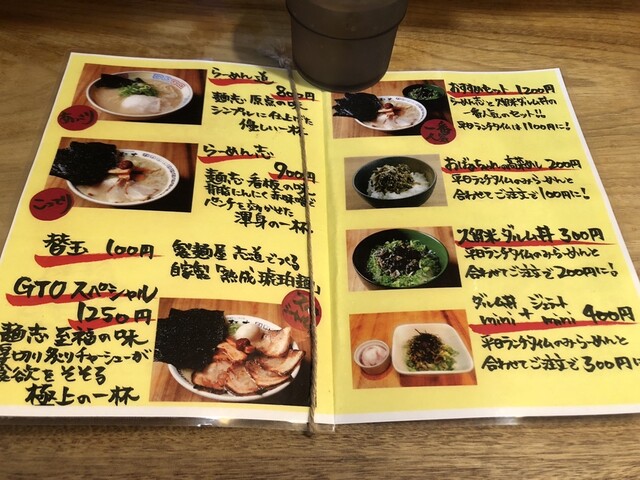 らーめん道
800円
麺志 原点の味
シンプルに仕上げた
優しい一杯
あっさり
らーめん志
900円
麺志 看板の味
背脂にんにく赤味噌で
パンチを効かせた
渾身の一杯
こってり
替玉 100円
製麺屋 志道でつくる
自家製「熟成 琥珀麺」
GTO スペシャル
1250円
麺志 至福の味
厚切り炙りチャーシューが
食欲をそそる
極上の一杯
おすすめセット 1200円
らーめん志と久留米ダルム丼の
一番人気のセット!!
平日ランチタイムは1100円に!
一番人気
おばぁちゃんの高菜めし 200円
平日ランチタイムのみらーめんと
合わせてご注文で100円に!
久留米ダルム丼 300円
平日ランチタイムのみらーめんと
合わせてご注文で200円に!
ダルム丼 ジェラート
mini + mini 400円
平日ランチタイムのみらーめんと
合わせてご注文で300円に!